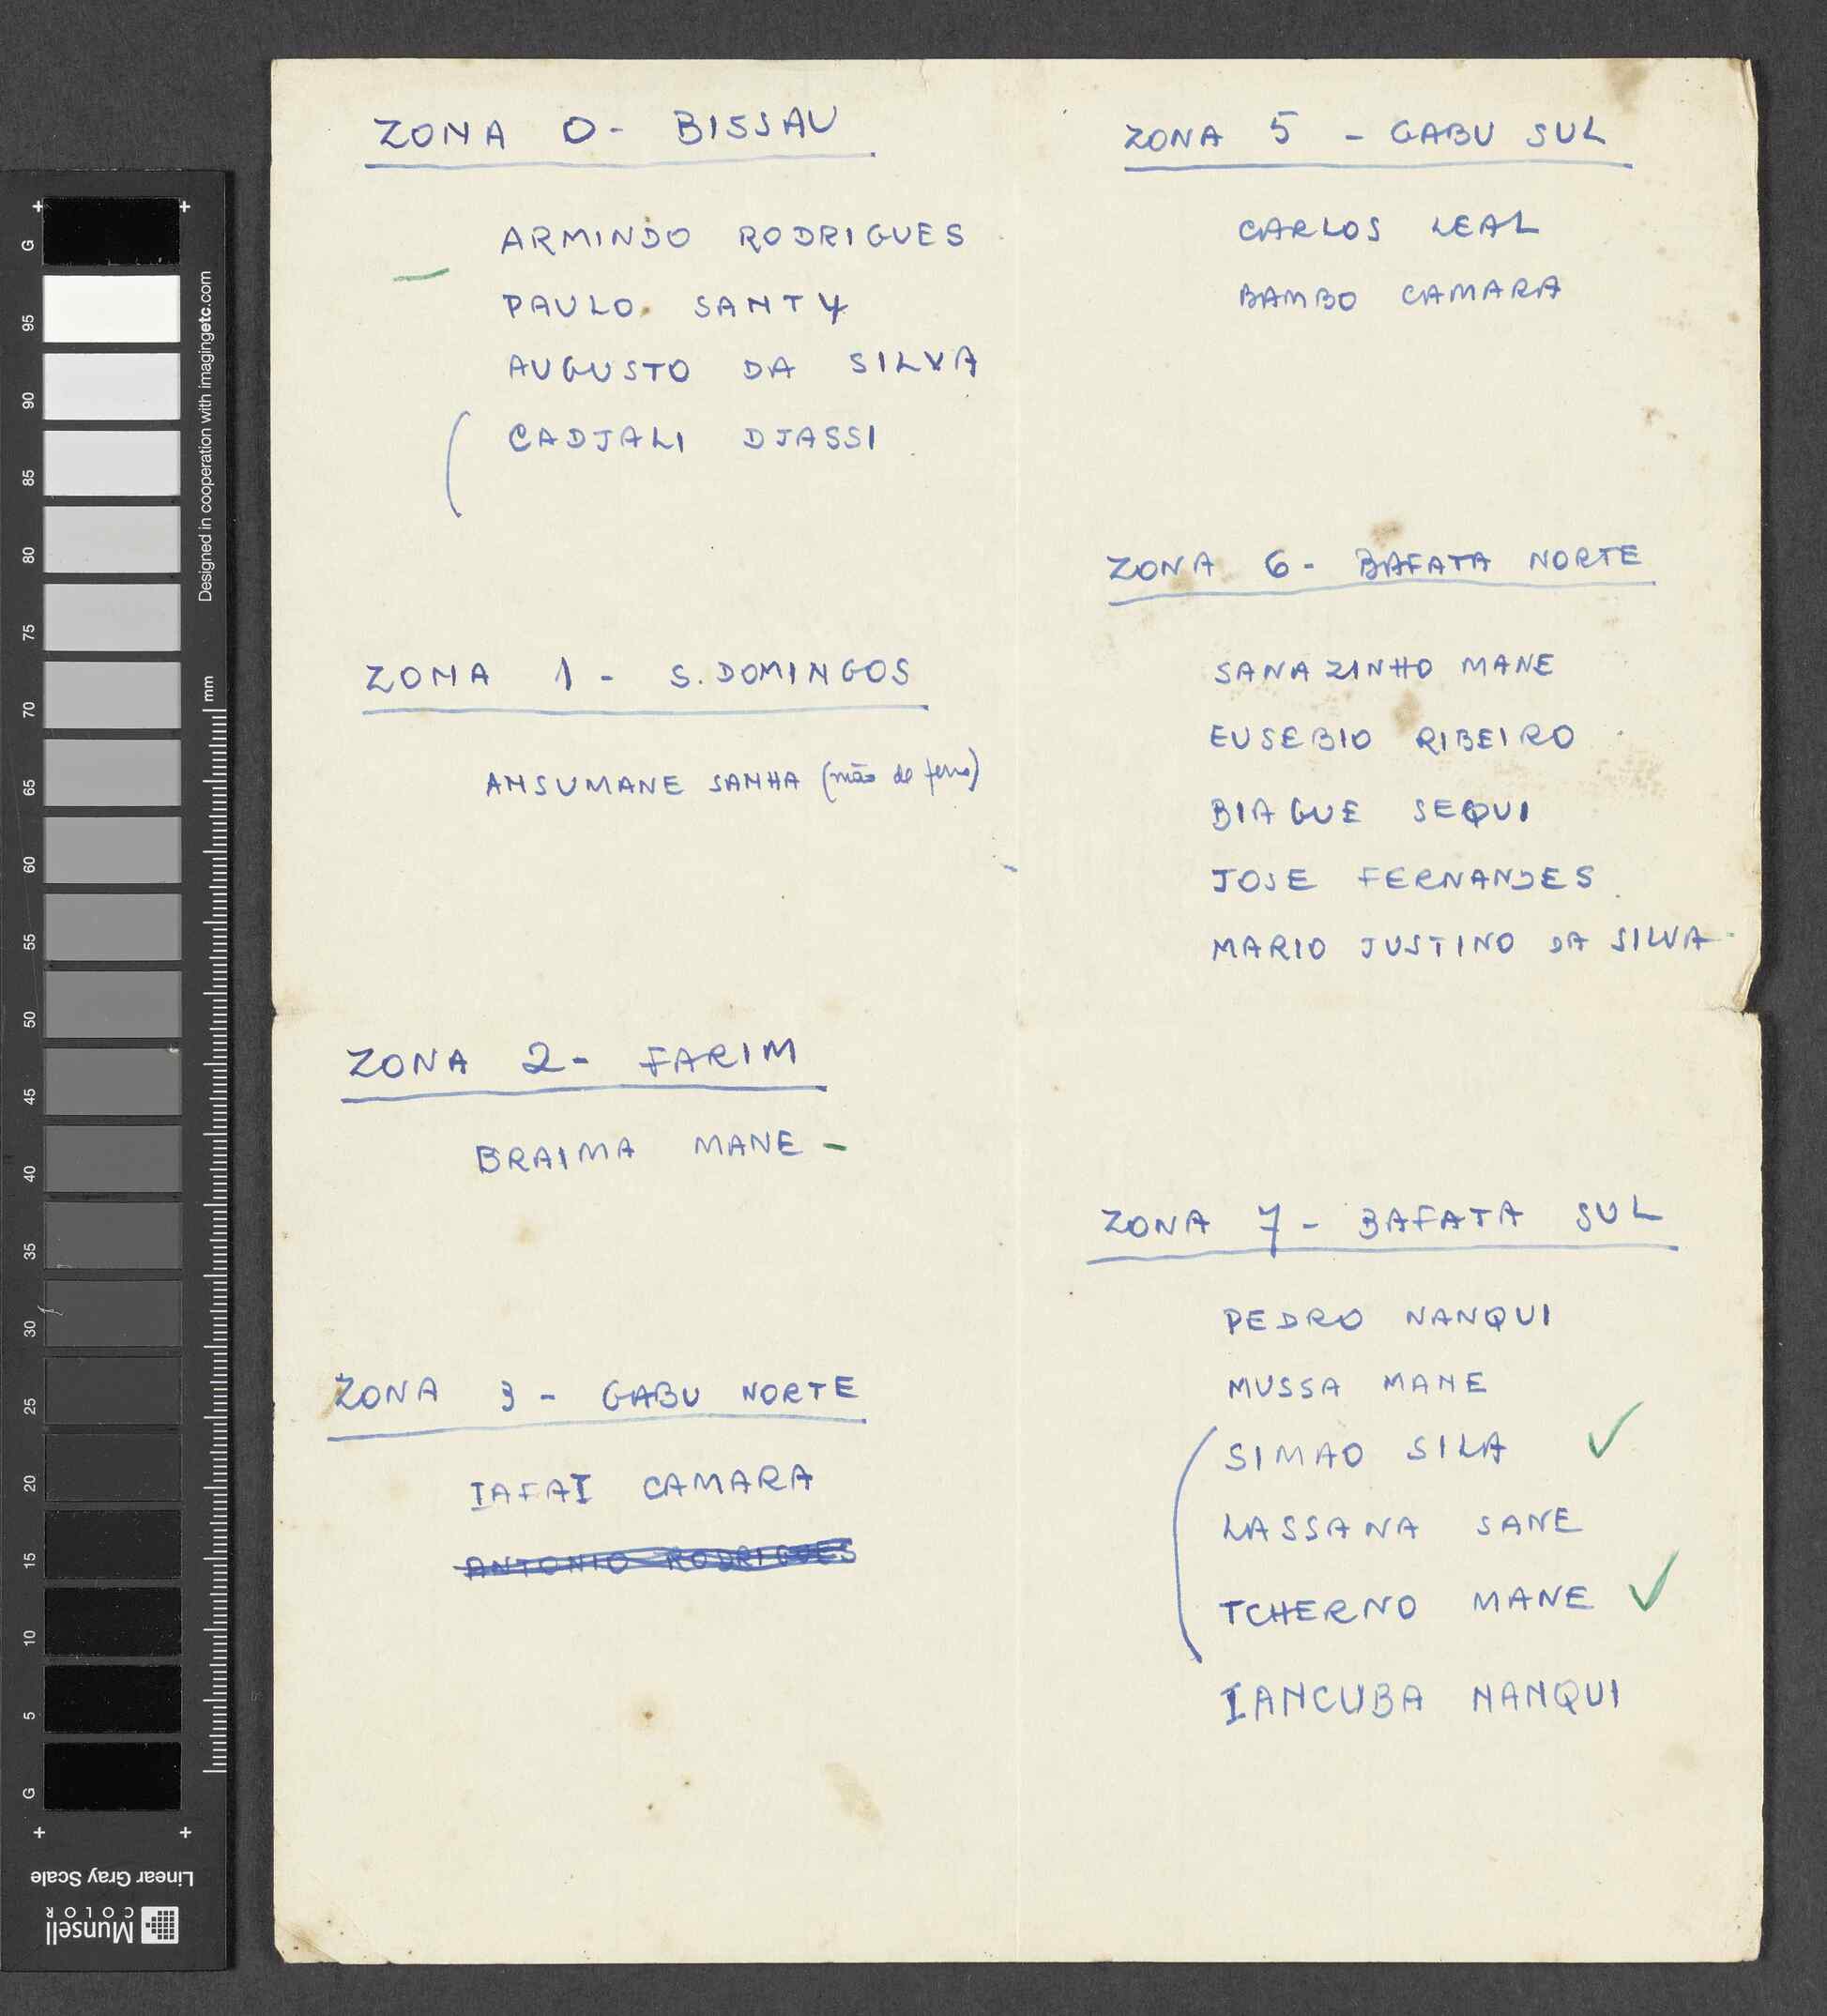 ZONA 0- BISSAU
ARMINDO RODRIGUES
PAULO SANTY
AUGUSTO DA SILVA
CADJALI DJASSI
ZONA 1 - S. DOMINGOS
ANSUMANE SANHA (mão de ferro)
ZONA 2- FARIM
BRAIMA MANE -
ZONA 3 - GABU NORTE
IAFAI CAMARA
ANTONIO RODRIGUES
ZONA 5 - GABU SUL
CARLOS LEAL
BAMBO CAMARA
ZONA 6- BAFATA NORTE
SANAZINHO MANE
EUSEBIO RIBEIRO
BIAGUE SEQUI
JOSE FERNANDES
MARIO JUSTINO DA SILVA
ZONA 7- BAFATA SUL
PEDRO NANQUI
MUSSA MANE
SIMAO SILA ✓
LASSANA SANE
TCHERNO MANE ✓
IANCUBA NANQUI
G
95
90
85
80
75
70
65
60
55
50
45
40
35
30
25
20
15
10
5
G
Designed in cooperation with imagingetc.com
mm
Linear Gray Scale
Munsell
COLOR